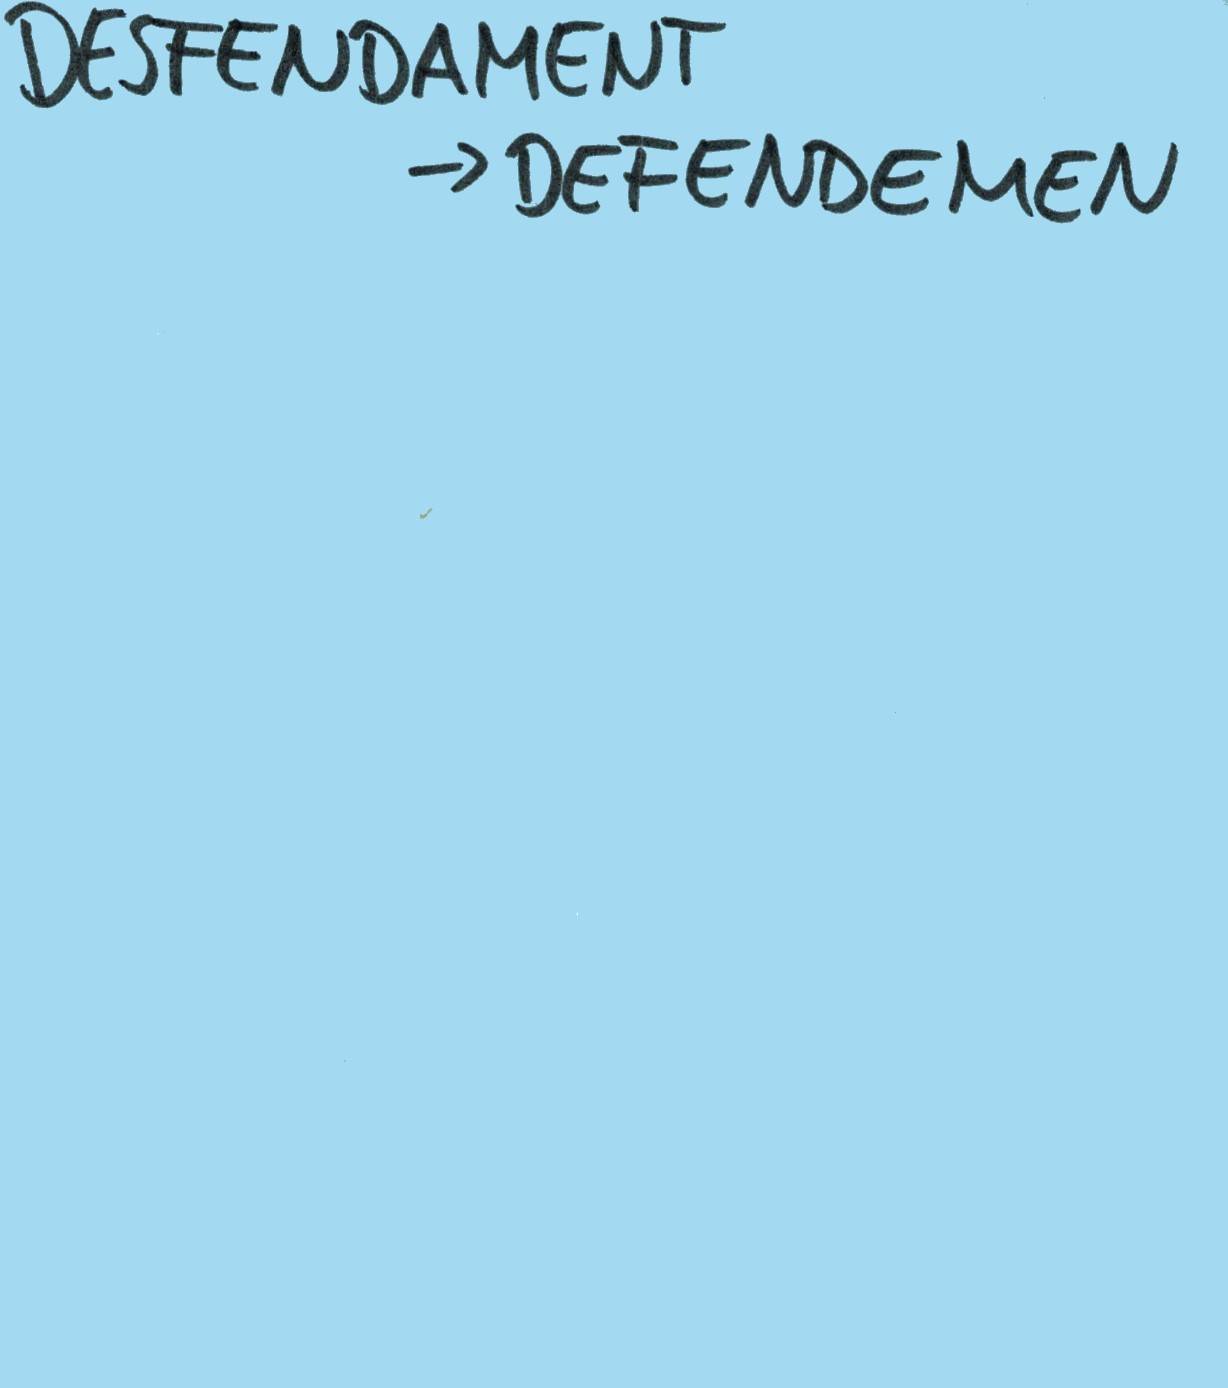 DESFENDAMENT
→ DEFENDEMEN